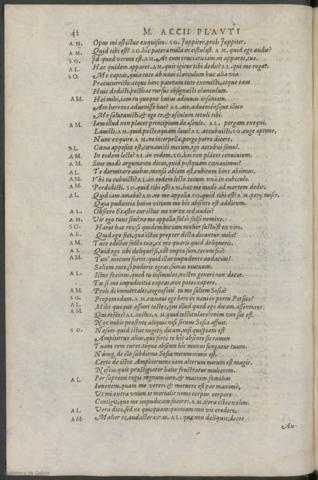 42 M. ACCII PLAVTI
AM. Opus mi est istuc exquisito. SO. Iuppiter, proh Iuppiter.
AM. Quid tibi est? SO. hic patera nulla in cistula est. AM. quid ego audio?
SO. Id quod verum est. AM. At cum cruciatu iam ni apparet, tuo.
AL. Hæc quidem apparet. AM. quis igitur tibi dedit? AL. qui me rogat.
SO. Me captas, quia tute ab naui clanculum huc alia via
Præcucurristi: atque hinc pateram tute exemisti, atque eam
Huic dedisti, post hac rursus obsignasti clanculum.
AM. Hei mihi, iam tu quoque huius adiuuas insaniam.
Ain heri nos aduenisse huc? AL. aio, adueniensque ilico
Me salutauisti, & ego te, & osculum tetuli tibi.
AM. Iam illud non placet principium de osculo. AL. pergam exequi.
AM. Lauisti. AM. quid postquam laui? AL. accubuisti. SO. euge optime,
Nunc exquire. AM. ne interpella, perge porro dicere.
AL. Cœna apposita est, cœnauisti mecum, ego accubui simul.
AM. In eodem lecto? AL. in eodem. SO. hei non placet conuiuium.
AM. Sine modo argumenta dicat, quid postquam cœnauimus?
AL. Te dormitare aiebas, mensa ablata est, cubitum hinc abiimus.
AM. Vbi tu cubuisti? AL. in eodem lecto tecum vna in cubiculo.
AM. Perdidisti. SO. quid tibi est? AM. hæc me modo ad mortem dedit.
AL. Quid iam amabo? AM. ne me appella. SO. quid tibi est? AM. perij miser,
Quia pudicitiæ huius vitium me hic absente est additum.
AL. Obsecro Ecastor cur istuc mi vir ex ted audio?
AM. Vir ego tuus sim? ne me appella falsi falso nomine.
SO. Hæret hæc res: si quidem hæc iam mulier facta est ex viro.
AL. Quid ego feci, qua istæc propter dicta dicantur mihi?
AM. Tute edictas facta tua, ex me quæris quid deliqueris.
AL. Quid ego tibi deliqui, si, cui nupta sum, tecum fui?
AM. Tun' mecum fueris? quid illac impudente audacius?
Saltem tute, si pudoris egeas: sumas mutuum.
AL. Istuc facinus, quod tu insimulas, nostro generi non decet.
Tu si me impudicitiæ captas, non potes capere.
AM. Proh di immortales, cognoscin' tu me saltem Sosia?
SO. Propemodum. AM. cœnaui ego heri in naui in portu Persico?
AL. Mihi quoque assunt testes, qui illud quod ego dicam, assentiant.
AM. Qui testes? AL. testes. AM. quid testes?
SO. Nescio quid istuc negoti dicam, nisi quispiam est
Amphitruo alius, qui forte te hic absente si tamen
Tuam rem curet: teque absente hic munus fungatur tuum.
Nam'q, de illo subditiuo Sosia mirum nimis est.
Certe de istoc Amphitruone iam alterum mirum est magis.
Nescio quis præstigiator hanc frustratur mulierem.
AL. Per supremi regis regnum iuro, & matrem familias
Iunonem, quam me vereri & metuere est par maxime,
Vt mi extra vnum te mortalis nemo corpus corpore
Contigit, quo me impudicam faceret. AM. vera istæc velim.
AL. Vera dico, sed ne quicquam: quoniam non vis credere.
AM. Mulier es, audacter iuras. AL. quæ non deliquit, decet
Au-